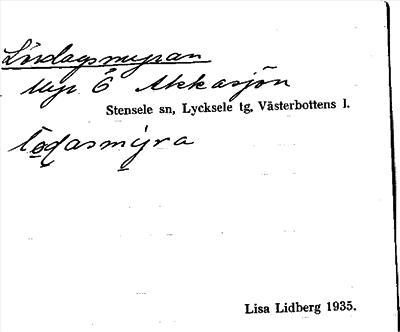 Lördagsmyran
Myr Ö Akkasjön
Stensele sn, Lycksele tg, Västerbottens l.
lo̱dasmy̱ra
Lisa Lidberg 1935.